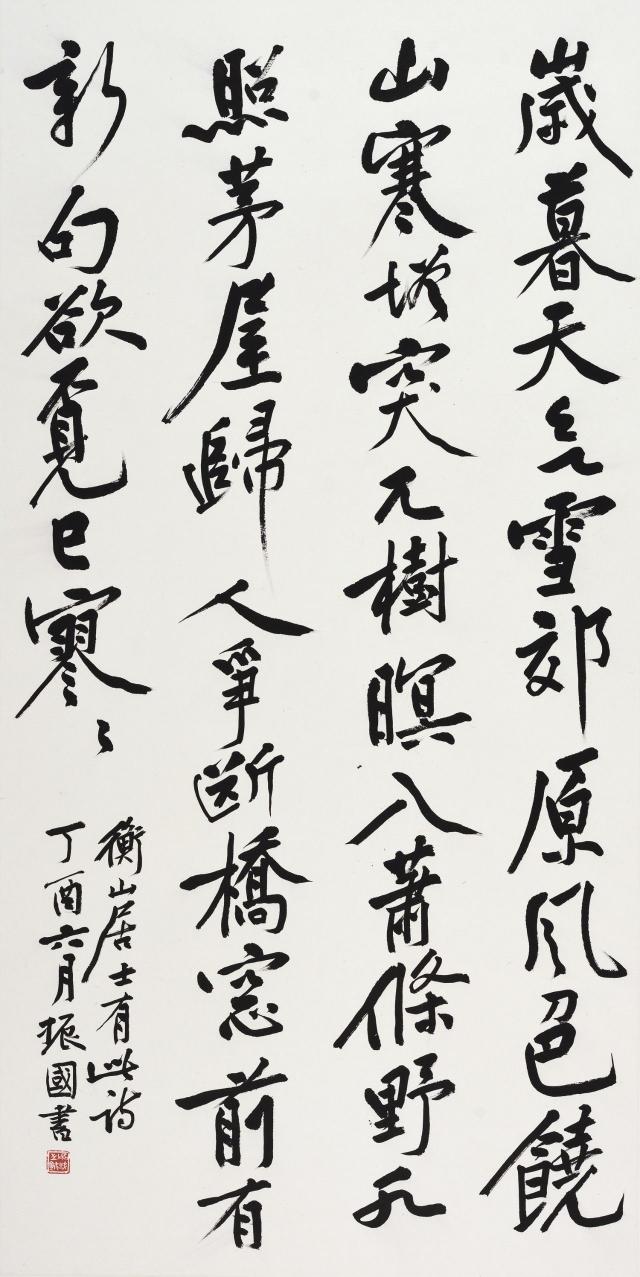 歲暮天气雪郊原风色饒
山寒塔突兀樹瞑入蕭條野火
照茅屋歸人爭断橋窓前有
新句欲覓已寥〻
衡山居士有此詩
丁酉六月振國書